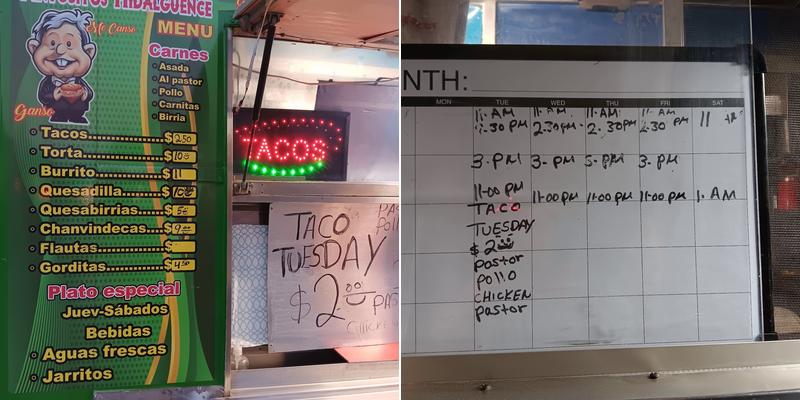 ANTOJITOS HIDALGUENCE
Mc Canso
MENU
Carnes
Asada
Al pastor
Pollo
Carnitas
Birria
Ganso
Tacos.............$ 2.50
Torta..............$ 10
Burrito...........$ 11
Quesadilla.....$ 10
Quesabirrias..$ 5
Chanvindecas.$ 9
Flautas..........$
Gorditas........$ 4.50
Plato especial
Juev-Sábados
Bebidas
Aguas frescas
Jarritos
TACOS
TACO
TUESDAY
$ 2.00
NTH:
MON TUE WED THU FRI SAT
11. AM 11. AM 11. AM 11. AM 11 AM
2.30 PM 2.30PM. 2.30PM 2.30 PM
3. PM 3. PM 3. PM 3. PM
11:00 PM 11:00 PM 11:00 PM 11:00 PM 1. AM
TACO
TUESDAY
$ 2.00
pastor
pollo
CHICKEN
pastor